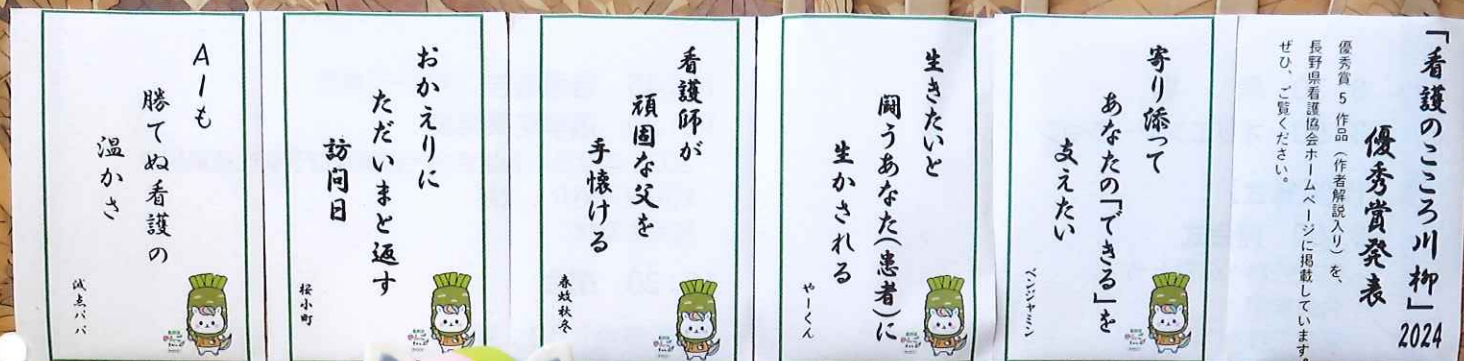 「看護のこころ川柳」2024
優秀賞発表
優秀賞5作品（作者解説入り）を、
長野県看護協会ホームページに掲載しています。
ぜひ、ご覧ください。
寄り添って
あなたの「できる」を
支えたい
ベンジャミン
生きたいと
闘うあなた（患者）に
生かされる
やーくん
看護師が
頑固な父を
手懐ける
春蚊秋冬
おかえりに
ただいまと返す
訪問日
桜小町
AIも
勝てぬ看護の
温かさ
減点パパ